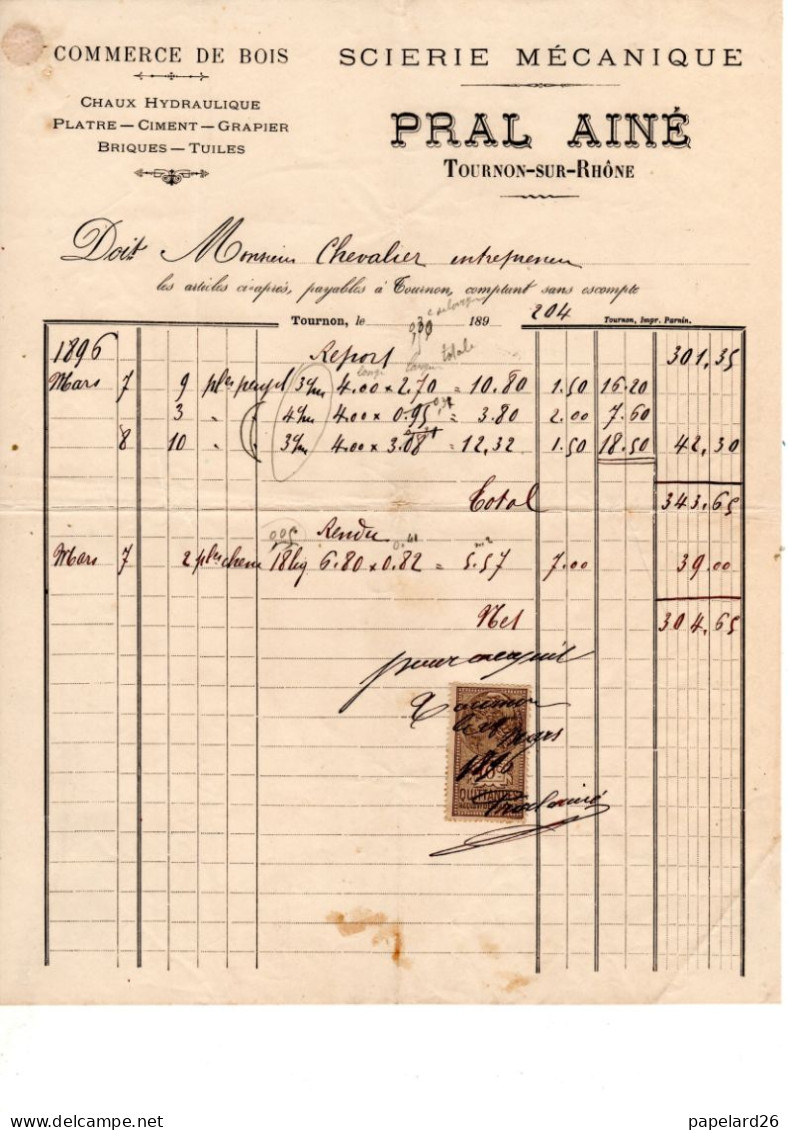 COMMERCE DE BOIS
CHAUX HYDRAULIQUE
PLATRE — CIMENT — GRAPIER
BRIQUES — TUILES
SCIERIE MÉCANIQUE
PRAL AINÉ
TOURNON-SUR-RHÔNE
Doit Monsieur Chevalier entrepreneur
les articles ci-après, payables à Tournon, comptant sans escompte
204
Tournon, le 189 Tournon, Impr. Parnin.
totale
1896 Report 301,35
Mars 7 9 3 4.00 x 2.70 = 10.80 1.50 16.20
3 " " 4 4.00 x 0.95 = 3.80 2.00 7.60
8 10 " " 3 4.00 x 3.08 = 12,32 1.50 18.50 42,30
Total 343.65
Rendu
Mars 7 2 18 6.80 x 0.82 = 5.57 7.00 39.00
Net 304,65
pour acquit
Tournon
le Mars
1896
QUITTANCES
Pral ainé
papelard26